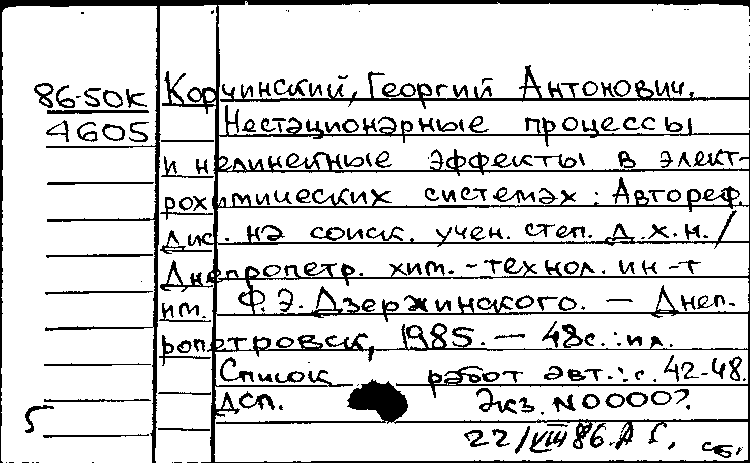 86-50К Корчинский, Георгий Антонович.
4605 Нестационарные процессы
и нелинейные эффекты в элект-
рохимических системах : Автореф.
Дис. на соиск. учен. степ. д.х.н. /
Днепропетр. хим.-технол. ин-т
им. Ф.Э. Дзержинского. — Днеп-
ропетровск, 1985. — 48с.: ил.
Список работ авт.: с. 42-48.
ДСП. Экз. N00007.
5 22/VIII 86.